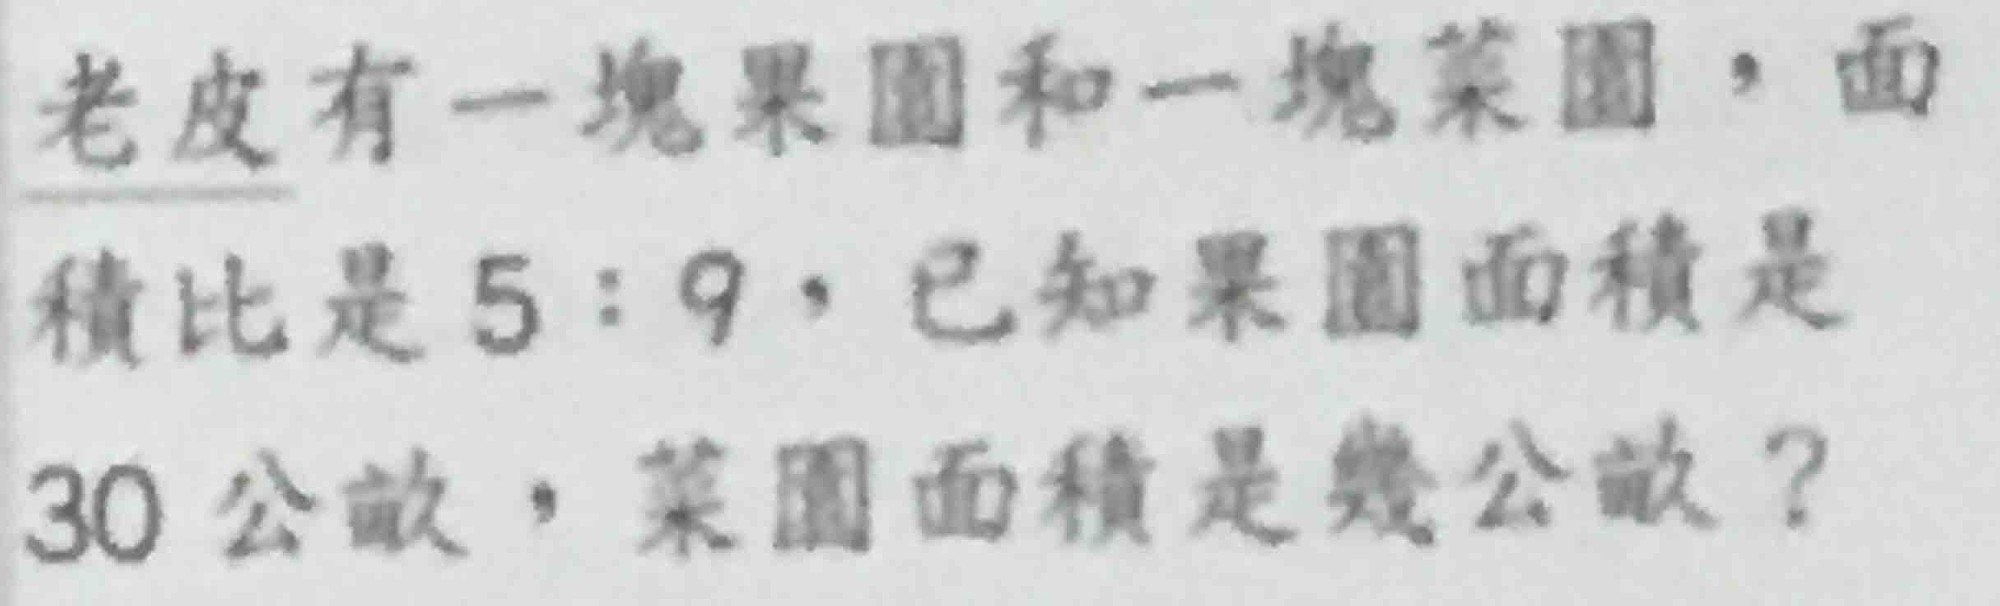 老皮有一塊果園和一塊菜園，面
積比是5：9，已知果園面積是
30公畝，菜園面積是幾公畝？